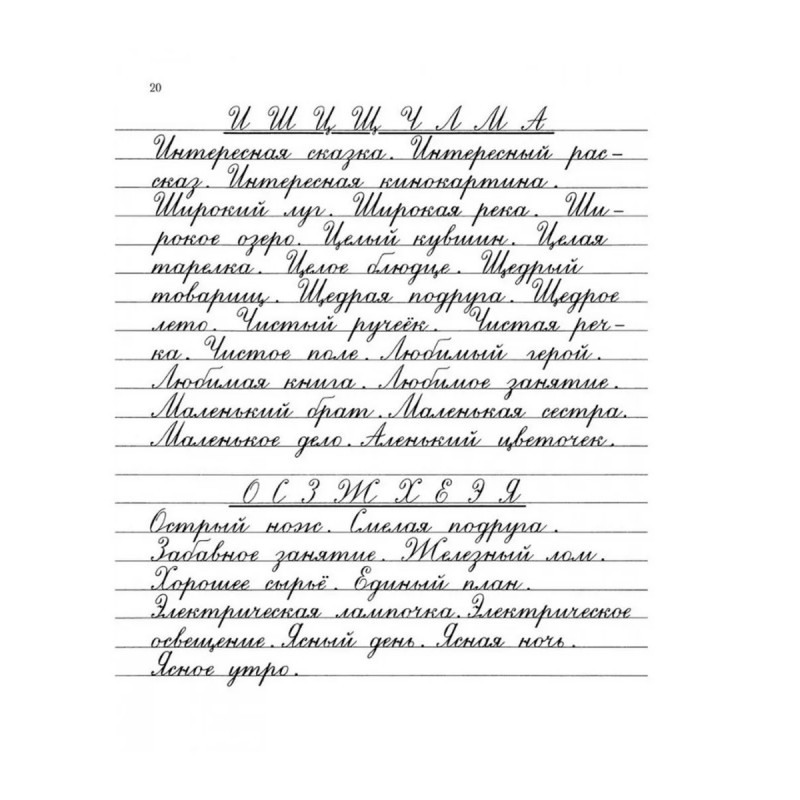 20
И Ш Ц Щ Ч Л М А
Интересная сказка. Интересный рас-
сказ. Интересная кинокартина.
Широкий луг. Широкая река. Ши-
рокое озеро. Целый кувшин. Целая
тарелка. Целое блюдце. Щедрый
товарищ. Щедрая подруга. Щедрое
лето. Чистый ручеёк. Чистая реч-
ка. Чистое поле. Любимый герой.
Любимая книга. Любимое занятие.
Маленький брат. Маленькая сестра.
Маленькое дело. Аленький цветочек.
О С З Ж Х Е Э Я
Острый нож. Смелая подруга.
Забавное занятие. Железный лом.
Хорошее сырьё. Единый план.
Электрическая лампочка. Электрическое
освещение. Ясный день. Ясная ночь.
Ясное утро.